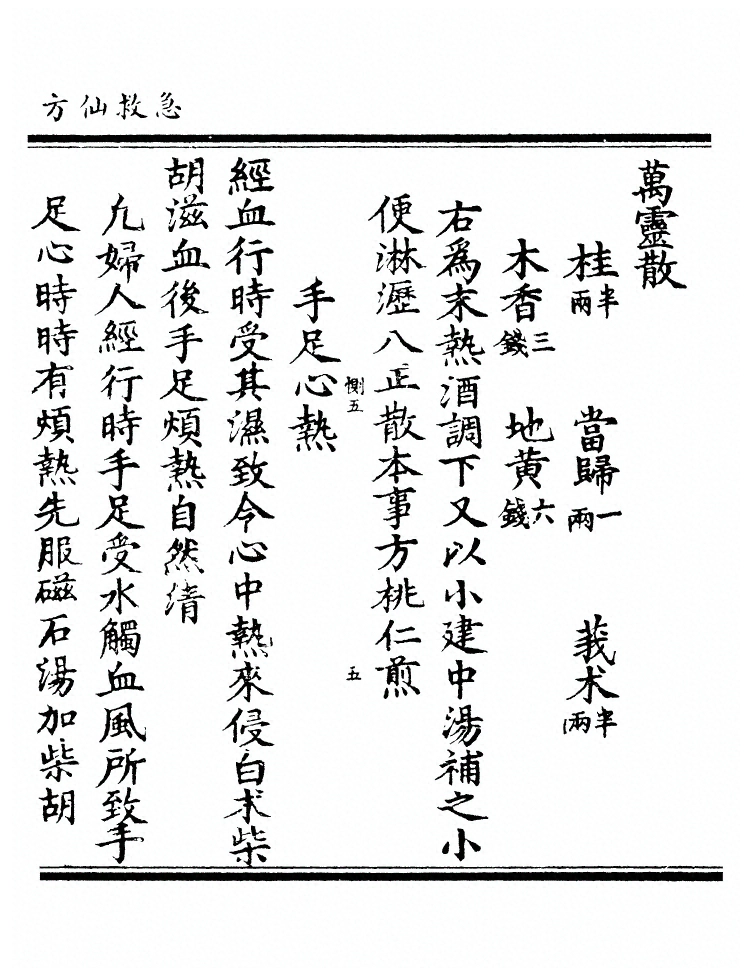 急救仙方
萬靈散
桂半兩 當歸一兩 莪朮半兩
木香三錢 地黃六錢
右為末熱酒調下又以小建中湯補之小
便淋瀝八正散本事方桃仁煎
惻五 五
手足心熱
經血行時受其濕致令心中熱來侵白朮柴
胡滋血後手足煩熱自然清
凡婦人經行時手足受水觸血風所致手
足心時時有煩熱先服磁石湯加柴胡